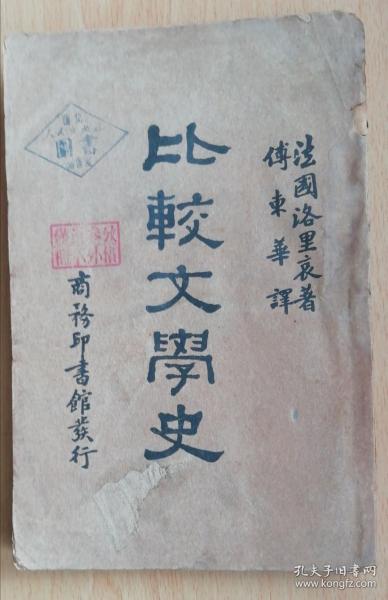 法國洛里哀著
傅東華譯
比較文學史
商務印書館發行
孔夫子旧书网
www.kongfz.com